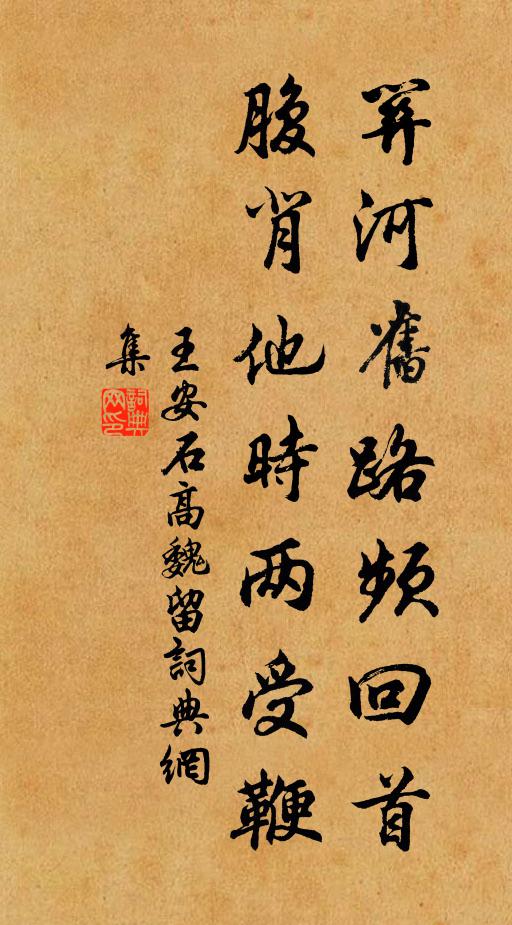 河舊路頻回首
腹背他時两受鞭
王安石高魏留詞典網
集
詞典
网印